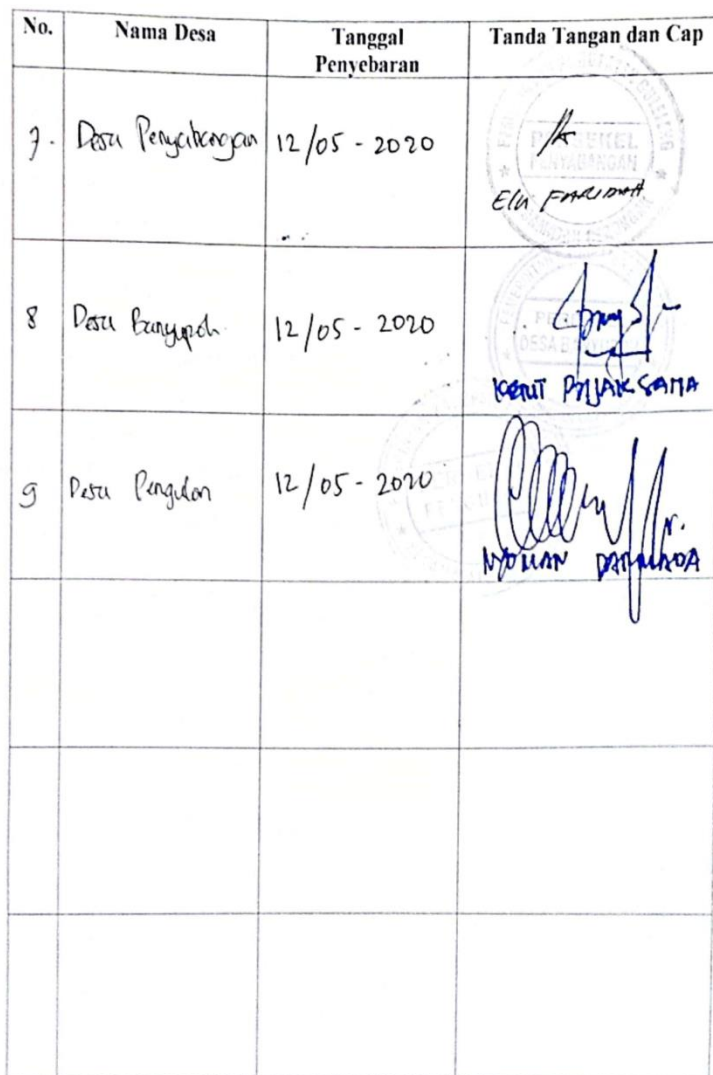 No. Nama Desa Tanggal Penyebaran Tanda Tangan dan Cap
7. Desa Penyabangan 12/05-2020
PENYABANGAN
Elu FARIDAH
8 Desa Banyupoh. 12/05-2020
KETUT
9 Desa Pengulon 12/05-2020
NYOMAN DARMADA